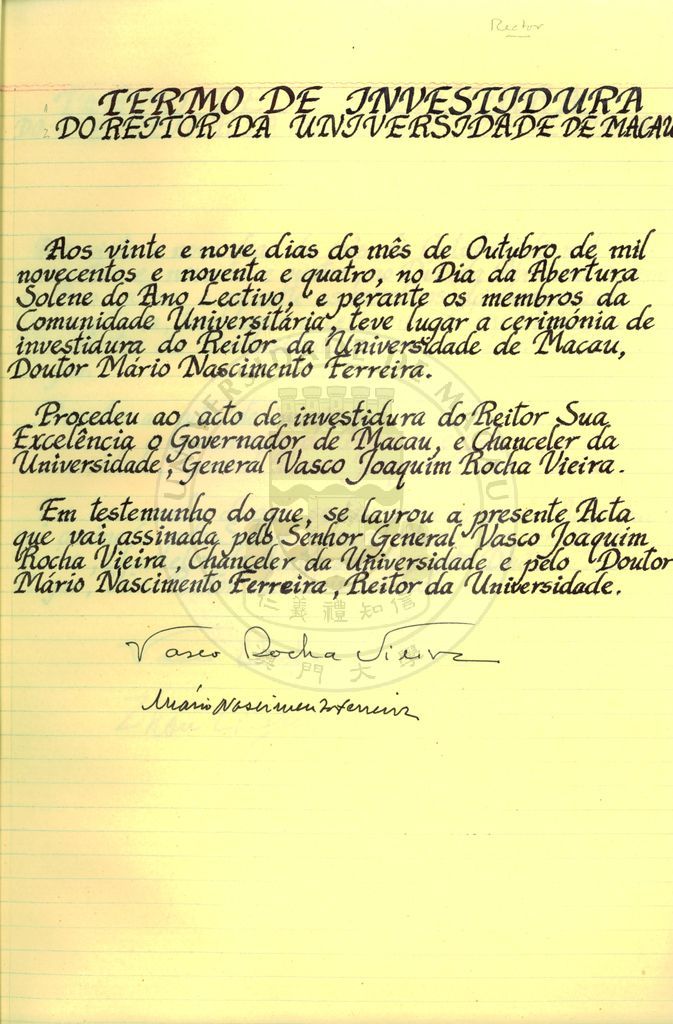 Rector
TERMO DE INVESTIDURA
DO REITOR DA UNIVERSIDADE DE MACAU
Aos vinte e nove dias do mês de Outubro de mil
novecentos e noventa e quatro, no Dia da Abertura
Solene do Ano Lectivo, e perante os membros da
Comunidade Universitária, teve lugar a cerimónia de
investidura do Reitor da Universidade de Macau,
Doutor Mário Nascimento Ferreira.
Procedeu ao acto de investidura do Reitor Sua
Excelência o Governador de Macau, e Chanceler da
Universidade, General Vasco Joaquim Rocha Vieira.
Em testemunho do que, se lavrou a presente Acta
que vai assinada pelo Senhor General Vasco Joaquim
Rocha Vieira, Chanceler da Universidade e pelo Doutor
Mário Nascimento Ferreira, Reitor da Universidade.
仁義禮知信
澳門大學
Vasco Rocha Vieira
Mário Nascimento Ferreira